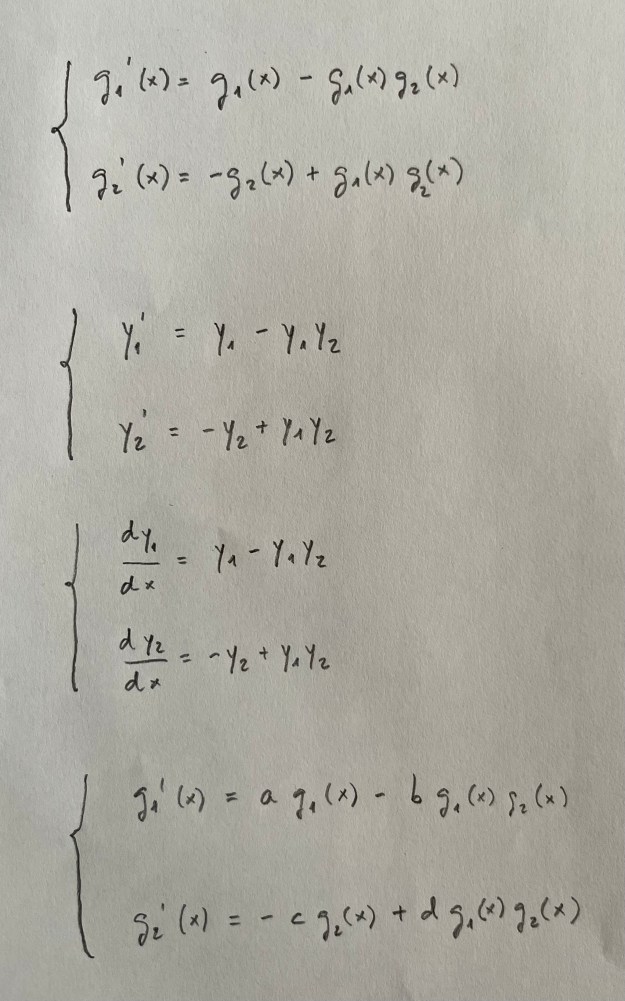 g₁'(x) = g₁(x) - g₁(x) g₂(x)
g₂'(x) = -g₂(x) + g₁(x) g₂(x)
y₁' = y₁ - y₁y₂
y₂' = -y₂ + y₁y₂
dy₁/dx = y₁ - y₁y₂
dy₂/dx = -y₂ + y₁y₂
g₁'(x) = a g₁(x) - b g₁(x) g₂(x)
g₂'(x) = - c g₂(x) + d g₁(x) g₂(x)